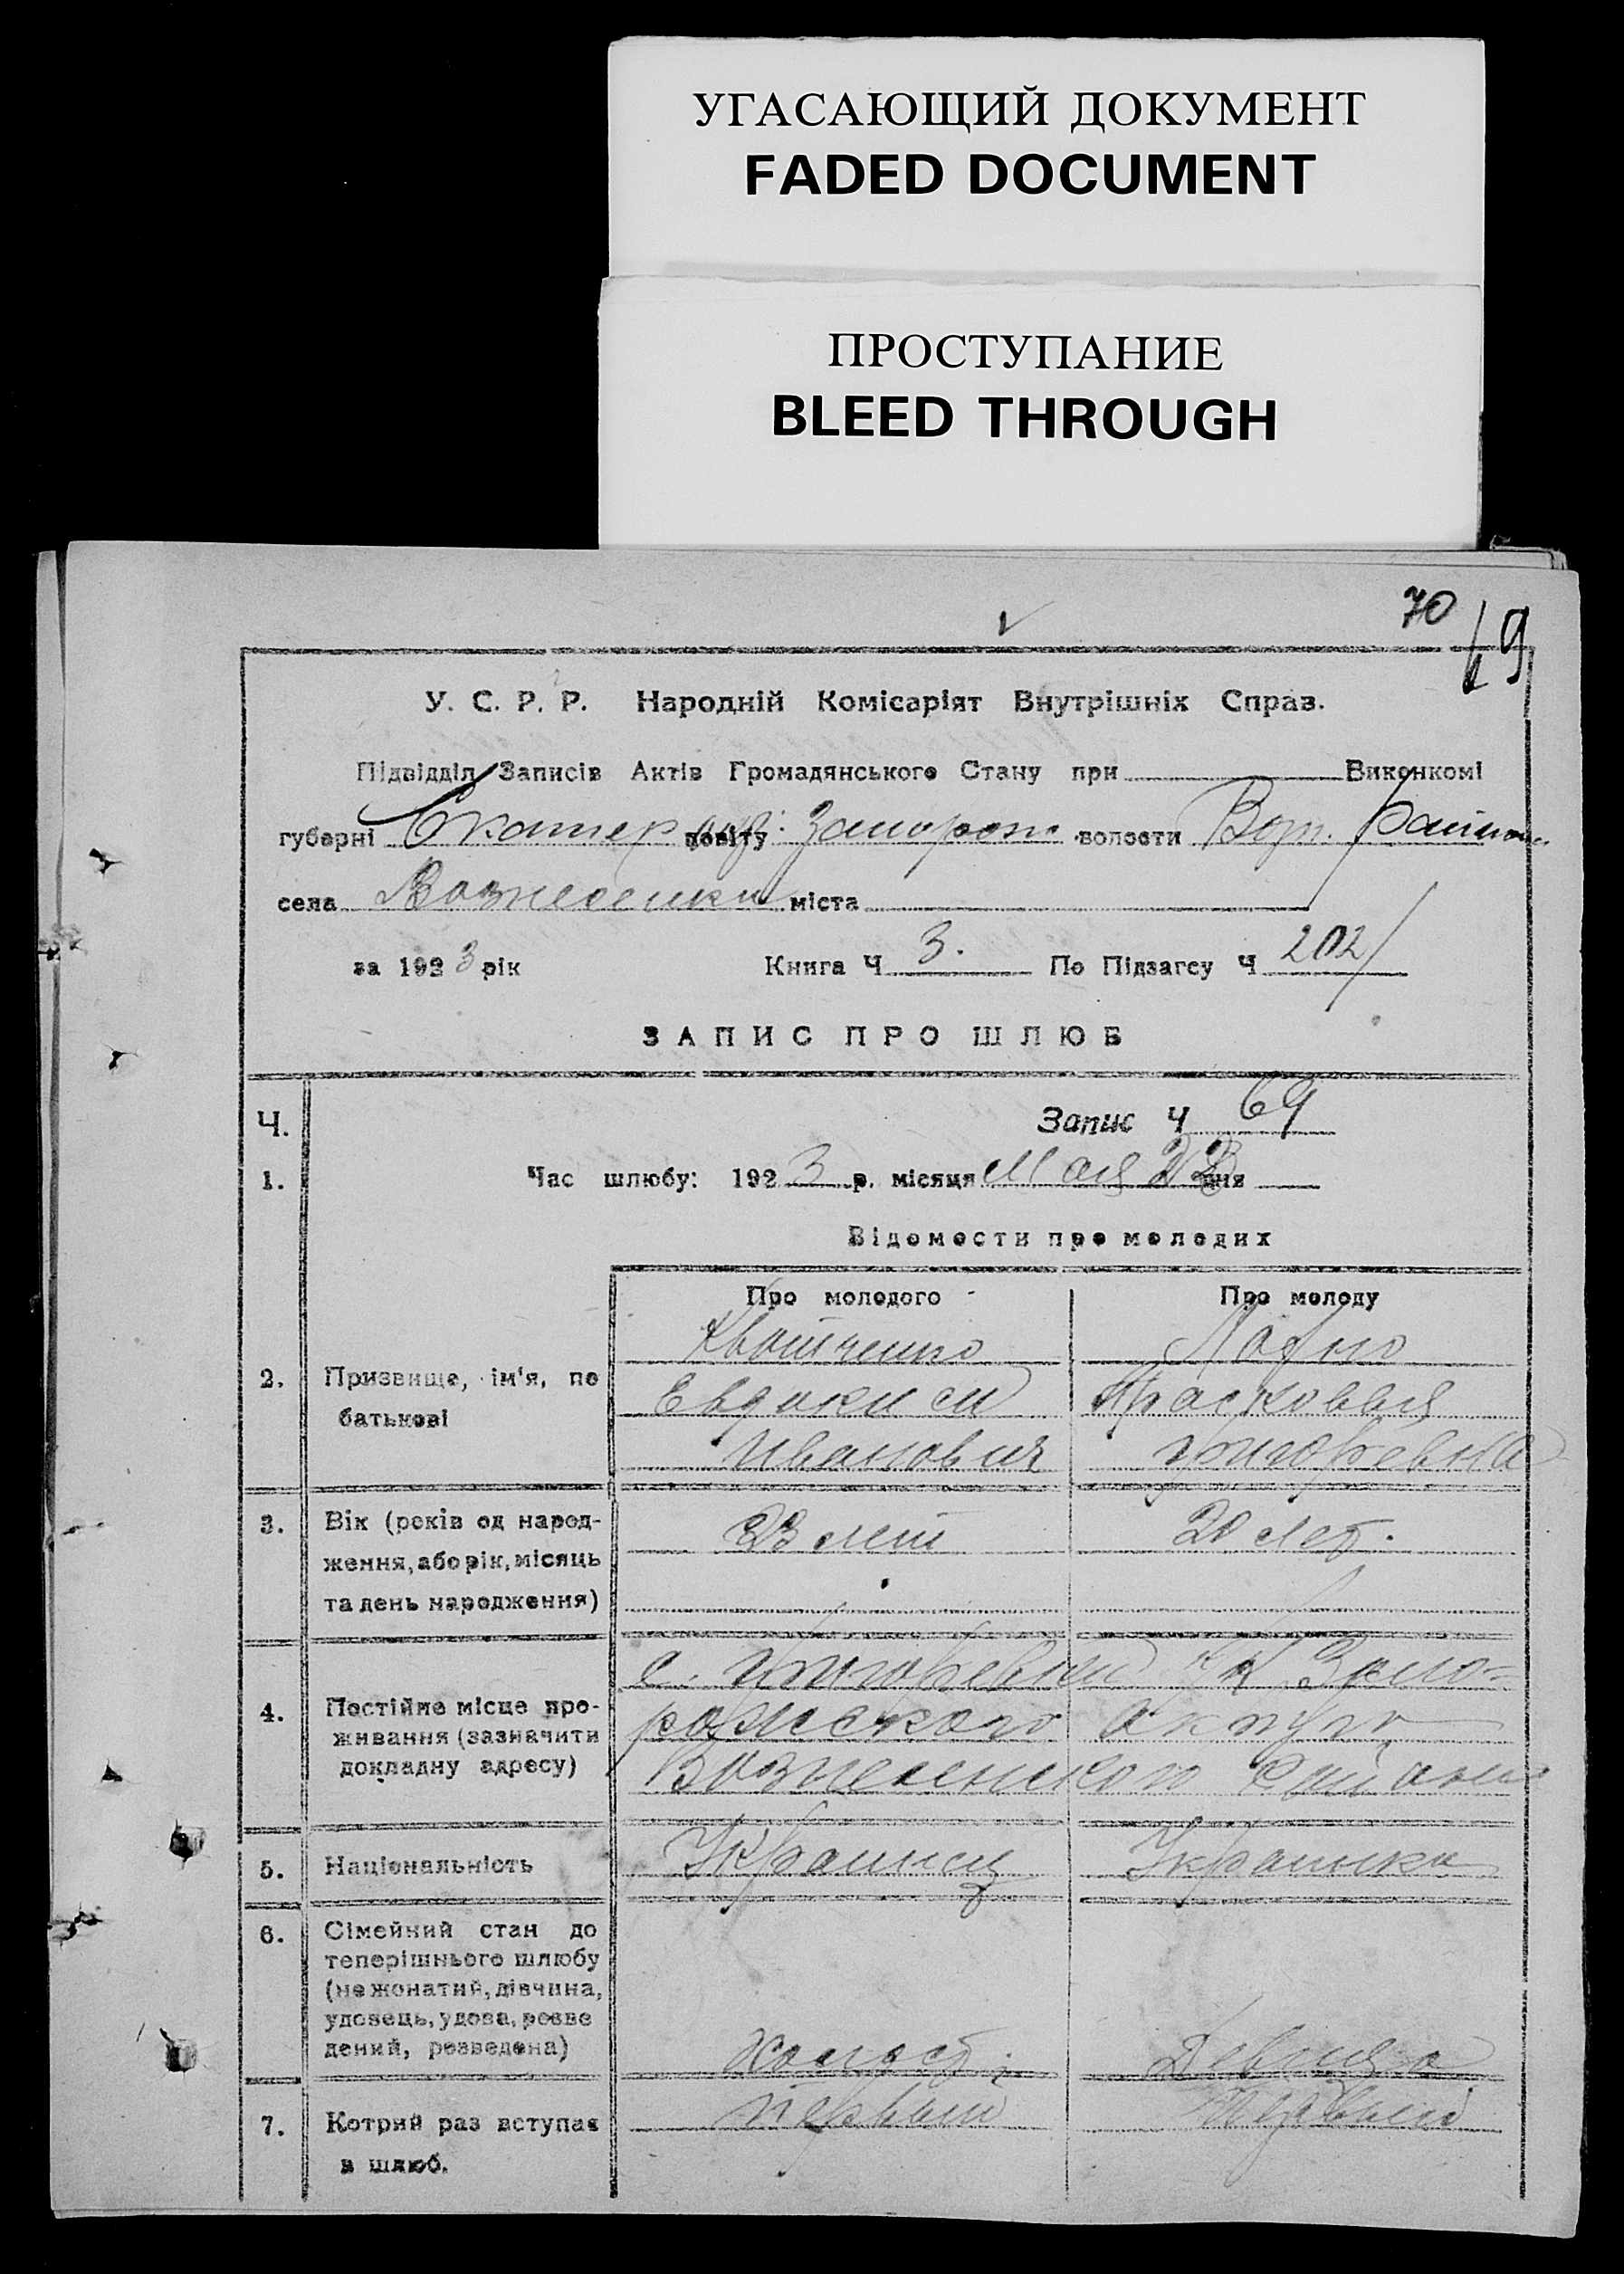 УГАСАЮЩИЙ ДОКУМЕНТ
FADED DOCUMENT
ПРОСТУПАНИЕ
BLEED THROUGH
70
У. С. Р. Р. Народній Комісаріят Внутрішніх Справ.
Підвідділ Записів Актів Громадянського Стану при Виконкомі
губерні Екатер повіту Запорож волости
села Вознесенки міста
за 1923 рік Книга Ч 3. По Підзагсу Ч 202
ЗАПИС ПРО ШЛЮБ
Ч. Запис Ч 69
1. Час шлюбу: 1923 р. місяця Мая 22 дня
Відомости про молодих
Про молодого Про молоду
Квитченко
2. Призвище, ім'я, по Евдоким Прасковья
батькові
Иванович Григорьевна
3. Вік (років од народ- 23 лет 20 лет.
ження, або рік, місяць
та день народження)
с. Григорьевки Запо-
4. Постійне місце про- рожского округа
живання (зазначити
докладну адресу) Вознесенского района
5. Національність Украинец Украинка
6. Сімейний стан до
теперішнього шлюбу
(не жонатий, дівчина,
удовець, удова, розве
дений, розведена) холост Девица
7. Котрий раз вступає первый первый
в шлюб.